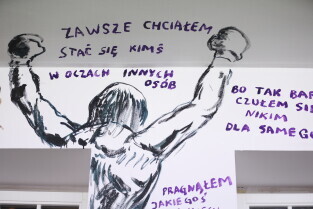 ZAWSZE CHCIAŁEM
STAĆ SIĘ KIMŚ
W OCZACH INNYCH
OSÓB
BO TAK
CZUŁEM
NIKIM
DLA
PRAGNĄŁEM
JAKIEGOŚ